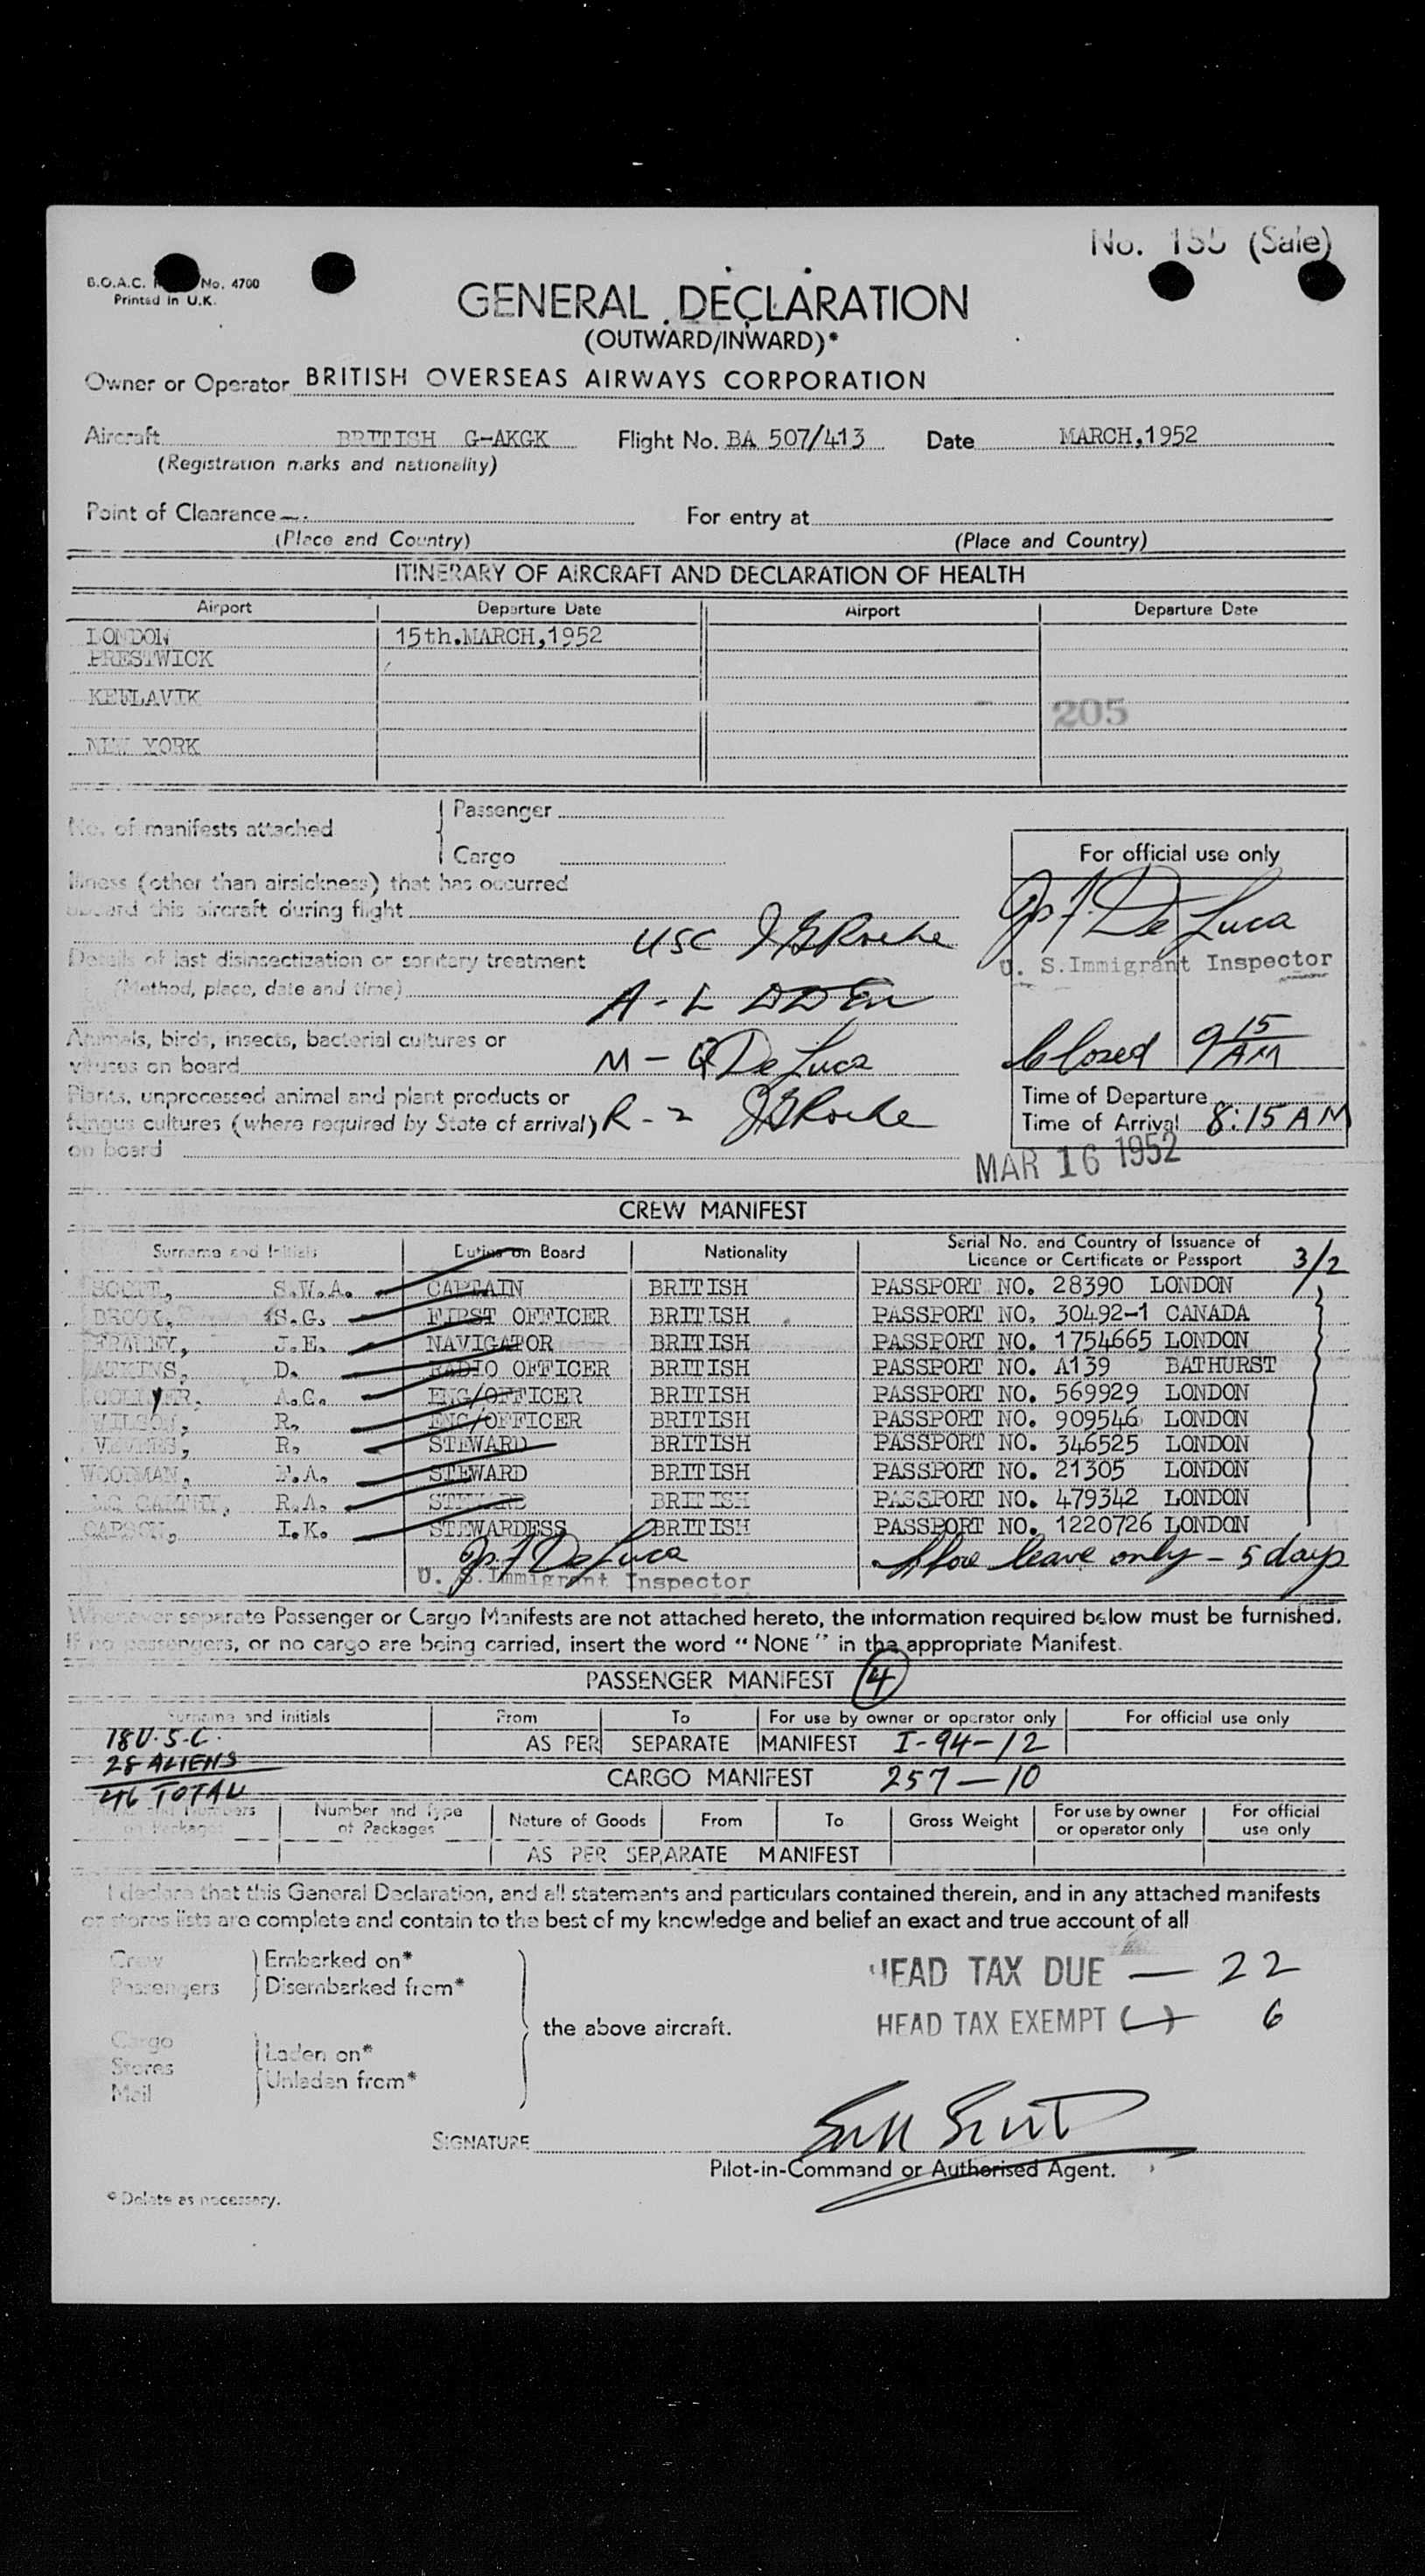 No. 155 (Sale)
B.O.A.C. No. 4700
Printed in U.K.
GENERAL DECLARATION
(OUTWARD/INWARD)*
Owner or Operator BRITISH OVERSEAS AIRWAYS CORPORATION
Aircraft BRITISH G-AKGK Flight No. BA 507/413 Date MARCH,1952
(Registration marks and nationality)
Point of Clearance For entry at
(Place and Country) (Place and Country)
ITINERARY OF AIRCRAFT AND DECLARATION OF HEALTH
Airport Departure Date Airport Departure Date
LONDON 15th.MARCH,1952
PRESTWICK
KEFLAVIK
205
NEW YORK
No. of manifests attached
Passenger
Cargo
For official use only
Illness (other than airsickness) that has occurred
aboard this aircraft during flight
Jos F. De Luca
USC J G Roche
Details of last disinsectization or sanitary treatment
U. S.Immigrant Inspector
(Method, place, date and time)
A - L
Animals, birds, insects, bacterial cultures or
viruses on board
M - De Luca
Closed 9 15 AM
Plants, unprocessed animal and plant products or
fungus cultures (where required by State of arrival)
on board
R - 2 J G Roche
Time of Departure
Time of Arrival 8:15 AM
MAR 16 1952
CREW MANIFEST
Surname and Initials Duties on Board Nationality Serial No. and Country of Issuance of
Licence or Certificate or Passport 3/2
SCOTT, S.W.A. CAPTAIN BRITISH PASSPORT NO. 28390 LONDON
BROOK, S.G. FIRST OFFICER BRITISH PASSPORT NO. 30492-1 CANADA
J.E. NAVIGATOR BRITISH PASSPORT NO. 1754665 LONDON
ATKINS, D. RADIO OFFICER BRITISH PASSPORT NO. A139 BATHURST
COLLYER, A.G. ENG/OFFICER BRITISH PASSPORT NO. 569929 LONDON
WILSON, R. ENG/OFFICER BRITISH PASSPORT NO. 909546 LONDON
R. STEWARD BRITISH PASSPORT NO. 346525 LONDON
WOODMAN, F.A. STEWARD BRITISH PASSPORT NO. 21305 LONDON
R.A. STEWARD BRITISH PASSPORT NO. 479342 LONDON
CARSON, I.K. STEWARDESS BRITISH PASSPORT NO. 1220726 LONDON
Jos F De Luca Shore leave only - 5 days
U. S.Immigrant Inspector
Whenever separate Passenger or Cargo Manifests are not attached hereto, the information required below must be furnished.
If no passengers, or no cargo are being carried, insert the word “NONE” in the appropriate Manifest.
PASSENGER MANIFEST 4
Surname and initials From To For use by owner or operator only For official use only
18 U.S.C. AS PER SEPARATE MANIFEST I-94-12
28 ALIENS
46 TOTAL
CARGO MANIFEST 257-10
Marks and Numbers
on Packages
Number and Type
of Packages
Nature of Goods From To Gross Weight
For use by owner
or operator only
For official
use only
AS PER SEPARATE MANIFEST
I declare that this General Declaration, and all statements and particulars contained therein, and in any attached manifests
or stores lists are complete and contain to the best of my knowledge and belief an exact and true account of all
Crew Embarked on*
Passengers Disembarked from*
HEAD TAX DUE — 22
HEAD TAX EXEMPT (-) 6
the above aircraft.
Cargo
Stores
Mail
Laden on*
Unladen from*
SIGNATURE
Pilot-in-Command or Authorised Agent.
* Delete as necessary.